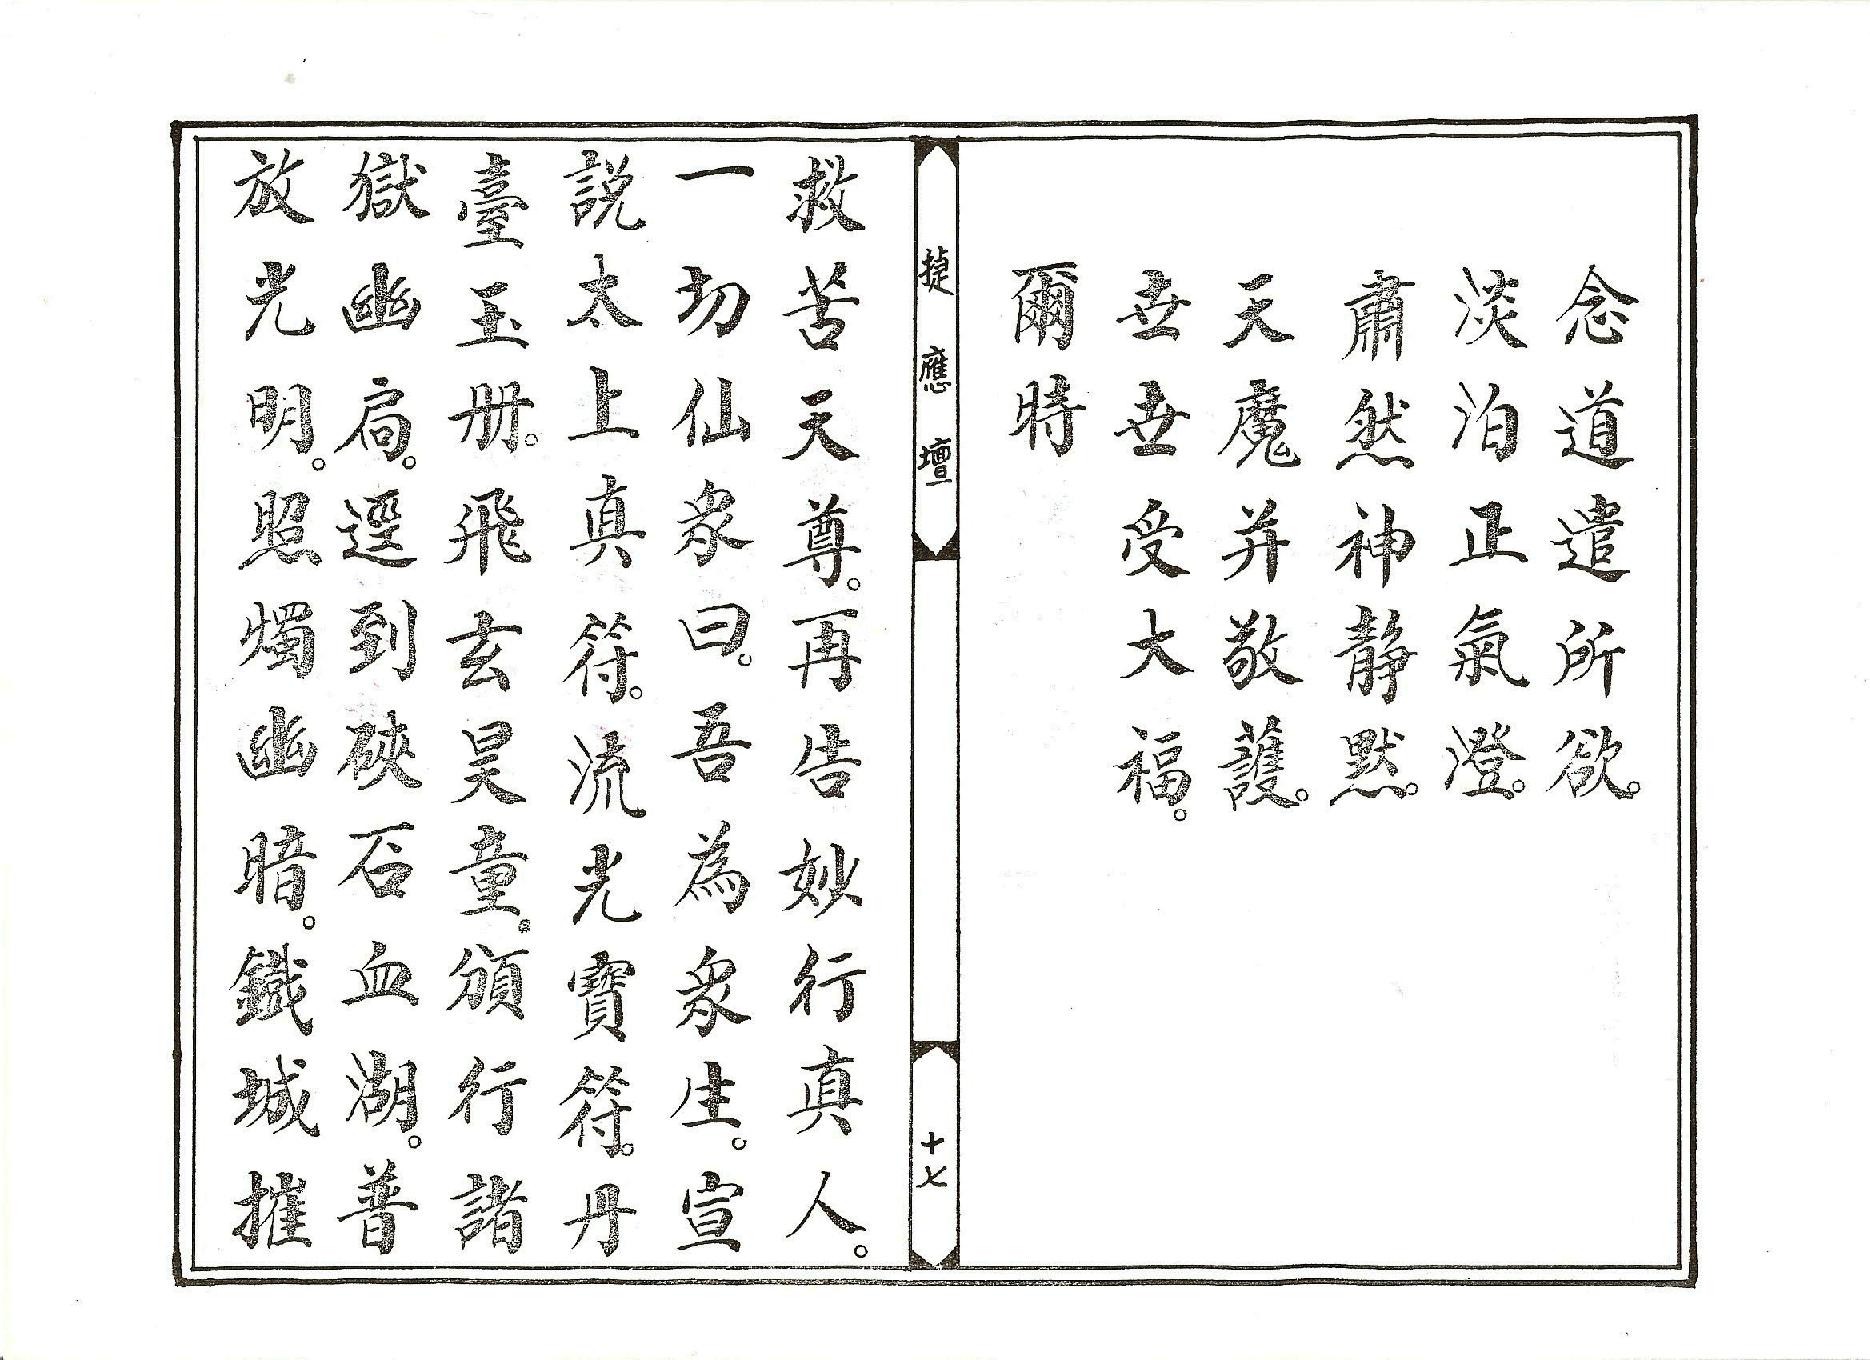 念道遣所欲。
淡泊正氣澄。
肅然神静默。
天魔并敬護。
世世受大福。
爾時
捷應壇
十七
救苦天尊。再告妙行真人。
一切仙衆曰。吾為衆生。宣
説太上真符。流光寶符。丹
臺玉册。飛玄昊童。頒行諸
獄幽扃。逕到硤石血湖。普
放光明。照燭幽暗。鐵城摧